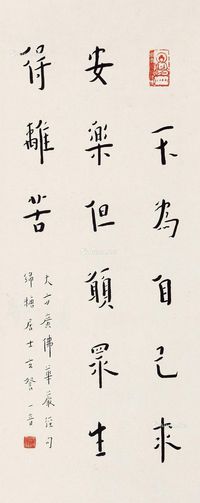 不為自己求
安樂但願眾生
得離苦
大方廣佛華嚴經句
居士玄 一音